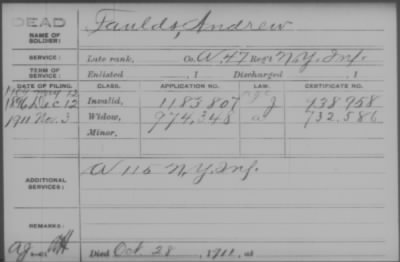 DEAD
NAME OF SOLDIER: Faulds, Andrew
SERVICE: Late rank, Co. A, 47 Reg't N.Y. Inf.
TERM OF SERVICE: Enlisted , 1 Discharged , 1
DATE OF FILING. CLASS. APPLICATION NO. LAW. CERTIFICATE NO.
1896 Dec 12 Invalid, 1183807 J 938958
1911 Nov. 3 Widow, 974,348 a 732.586
Minor,
ADDITIONAL SERVICES: A 115 N.Y. Inf.
REMARKS:
Died Oct. 28 , 1911, at